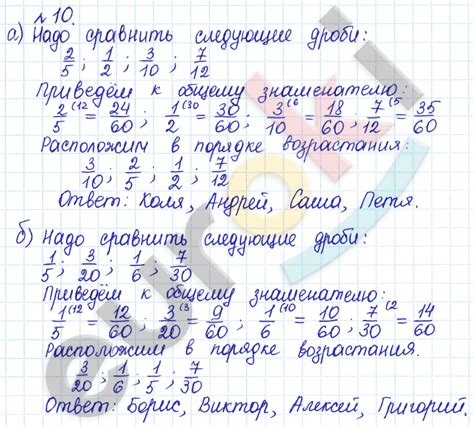 № 10.
а) Надо сравнить следующие дроби:
2/5 ; 1/2 ; 3/10 ; 7/12
Приведём к общему знаменателю:
2/5 (12 = 24/60 ; 1/2 (30 = 30/60 ; 3/10 (6 = 18/60 ; 7/12 (5 = 35/60
Расположим в порядке возрастания:
3/10 ; 2/5 ; 1/2 ; 7/12
Ответ: Коля, Андрей, Саша, Петя.
б) Надо сравнить следующие дроби:
1/5 ; 3/20 ; 1/6 ; 7/30
Приведём к общему знаменателю:
1/5 (12 = 12/60 ; 3/20 (3 = 9/60 ; 1/6 (10 = 10/60 ; 7/30 (2 = 14/60
Расположим в порядке возрастания.
3/20 ; 1/6 ; 1/5 ; 7/30
Ответ: Борис, Виктор, Алексей, Григорий.
euroki